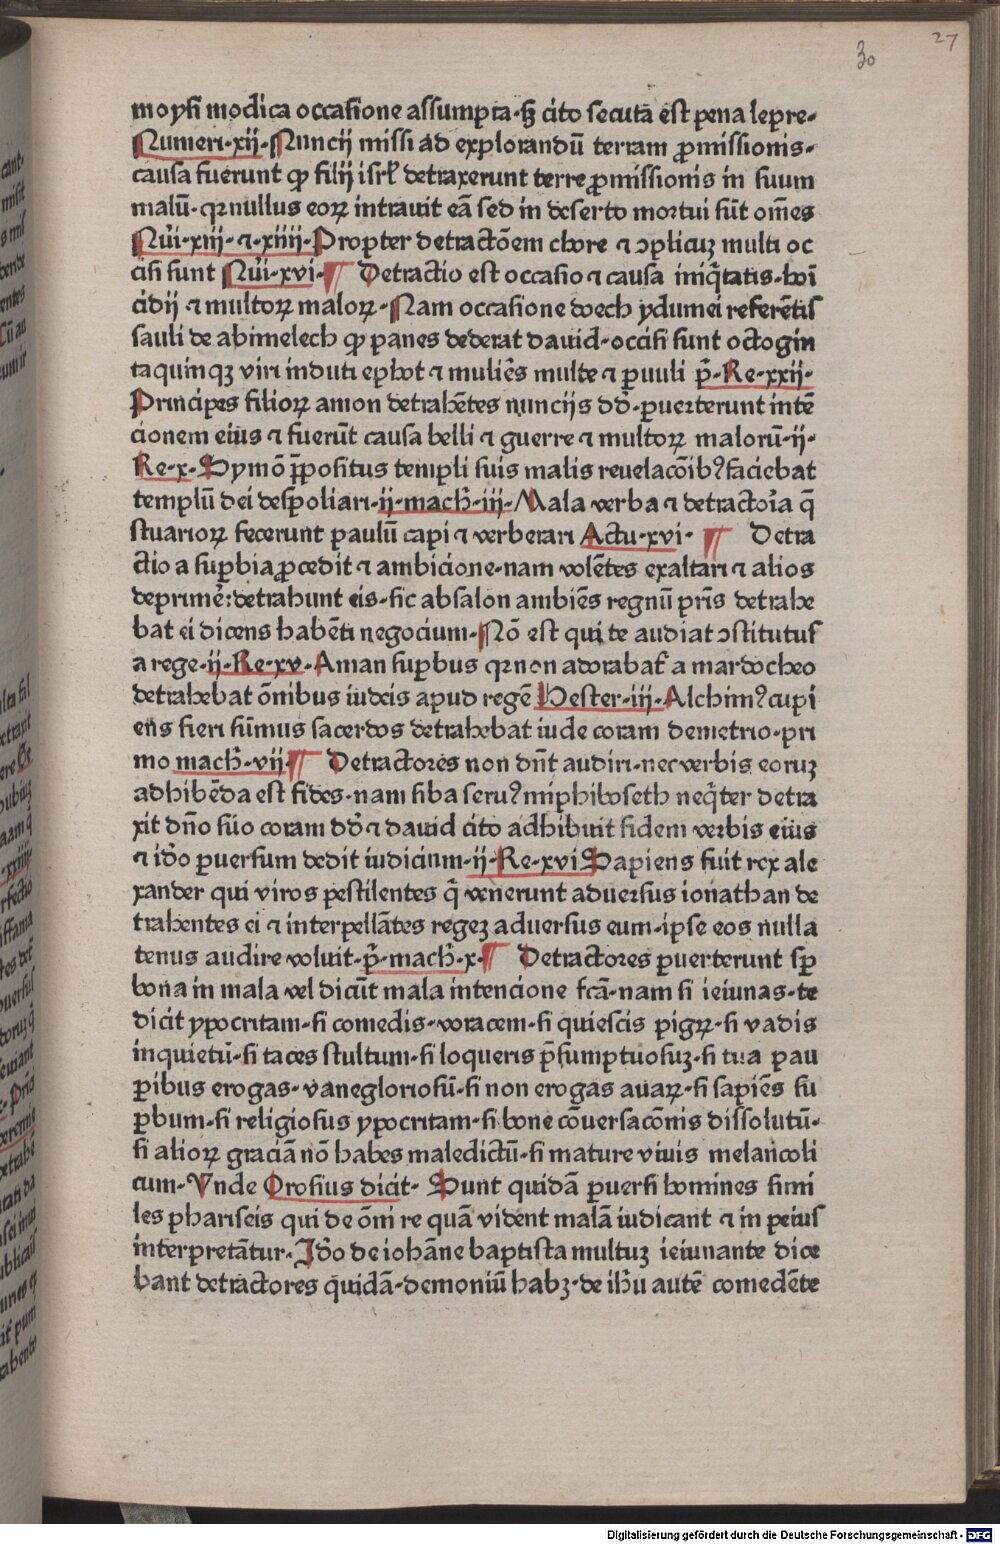 27
30
moysi modica occasione assumpta·sꝫ cito secuta est pena lepre·
Numeri·xij·Nuncij missi ad explorandū terram ꝓmissionis·
causa fuerunt ꝙ filij isrl̄ detraxerunt terre ꝓmissionis in suum
malū·qꝛ nullus eoꝝ intrauit eā sed in deserto mortui sūt om̄es
Nūi·xiij·⁊·xiiij·Propter detractōem chore ⁊ ꝯplicuꝫ multi oc
cisi sunt Nūi·xvi·¶ Detractio est occasio ⁊ causa iniq̄tatis·hoī
cidij ⁊ multoꝝ maloꝝ·Nam occasione doech ydumei referētis
sauli de abimelech ꝙ panes dederat dauid·occisi sunt octogin
taquinqꝫ viri induti ephot ⁊ muliēs multe ⁊ ꝑuuli p̄·Re·xxij·
Principes filioꝝ amon detrahētes nuncijs dd̄·ꝑuerterunt intē
cionem eius ⁊ fuerūt causa belli ⁊ guerre ⁊ multoꝝ malorū·ij·
Re·x·Symō p̄positus templi suis malis reuelacōibꝰ faciebat
templū dei despoliari·ij·mach̄·iij·Mala verba ⁊ detractoīa q̄
stuarioꝝ fecerunt paulū capi ⁊ verberari Actu·xvi· ¶ Detra
ctio a suꝑbia ꝓcedit ⁊ ambicione·nam volētes exaltari ⁊ alios
deprimē:detrahunt eis·sic absalon ambiēs regnū pr̄is detrahe
bat ei dicens habēti negocium·Nō est qui te audiat ꝯstitutus
a rege·ij·Re·xv·Aman suꝑbus qꝛ non adorabat᷑ a mardocheo
detrahebat ōnibus iudeis apud regē Hester·iij·Alchimꝰ cupi
ens fieri sūmus sacerdos detrahebat iude coram demetrio·pri
mo mach̄·vij·¶ Detractores non dn̄t audiri·nec verbis eoruꝫ
adhibēda est fides·nam siba seruꝰ miphiboseth neq̄ter detra
xit dn̄o suo coram dd̄ ⁊ dauid cito adhibuit fidem verbis eius
⁊ id̄o ꝑuersum dedit iudicium·ij·Re·xvi Sapiens fuit rex ale
xander qui viros pestilentes q̄ venerunt aduersus ionathan de
trahentes ei ⁊ interpellātes regeꝫ aduersus eum·ipse eos nulla
tenus audire voluit·p̄·mach̄·x·¶ Detractores ꝑuerterunt sꝑ
bona in mala vel dicūt mala intencione fcā·nam si ieiunas·te
dicit ypocritam·si comedis·voracem·si quiescis pigꝝ·si vadis
inquietū·si taces stultum·si loqueris p̄sumptuosuꝫ·si tua pau
ꝑibus erogas·vanegloriosū·si non erogas auaꝝ·si sapiēs su
ꝑbum·si religiosus ypocritam·si bone cōuersacōnis dissolutū·
si alioꝝ graciā nō habes maledictū·si mature viuis melancoli
cum·Vnde Orosius dicit·Sunt quidā ꝑuersi homines simi
les phariseis qui de ōni re quā vident malā iudicant ⁊ in peius
interpretātur·Id̄o de iohāne baptista multuꝫ ieiunante dice
bant detractores quidā·demoniū habꝫ·de ih̄u autē comedēte
Digitalisierung gefördert durch die Deutsche Forschungsgemeinschaft - DFG